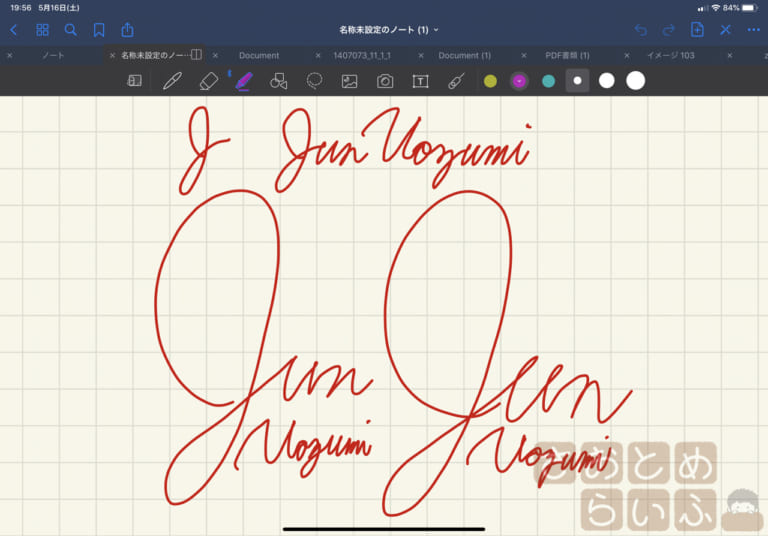 19:56 5月16日(土) 84%
名称未設定のノート (1)
ノート 名称未設定のノー… Document 1407073_11_1_1 Document (1) PDF書類 (1) イメージ 103
T
J Jun Uozumi
Jun Jun
Uozumi Uozumi
さおとめ
らいふ